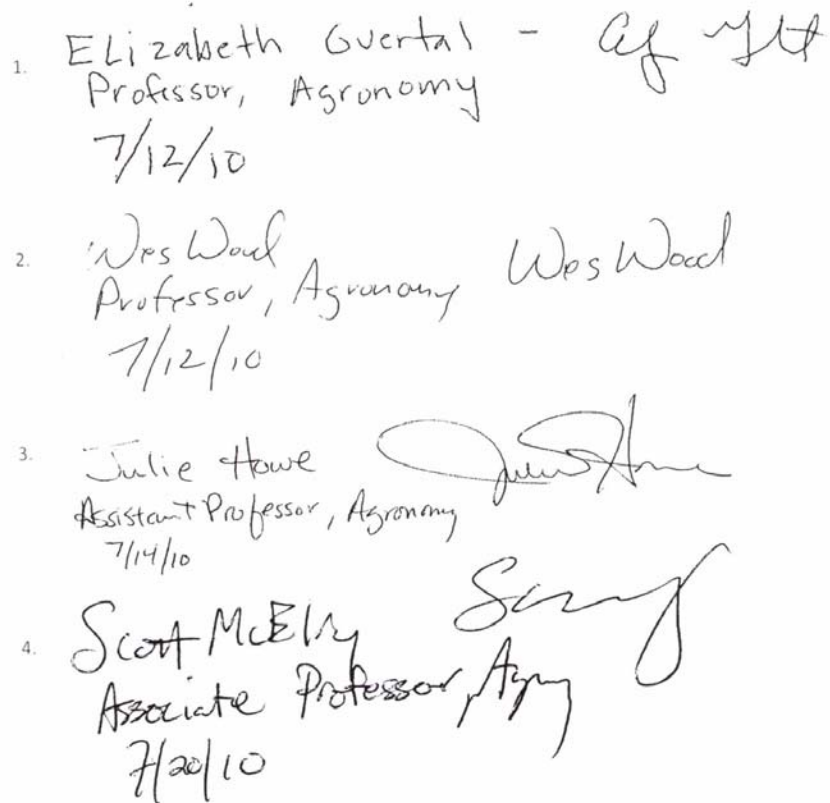 1. Elizabeth Guertal -
Professor, Agronomy
7/12/10
2. Wes Wood Wes Wood
Professor, Agronomy
7/12/10
3. Julie Howe
Assistant Professor, Agronomy
7/14/10
4. Scott McElroy
Associate Professor,
7/20/10